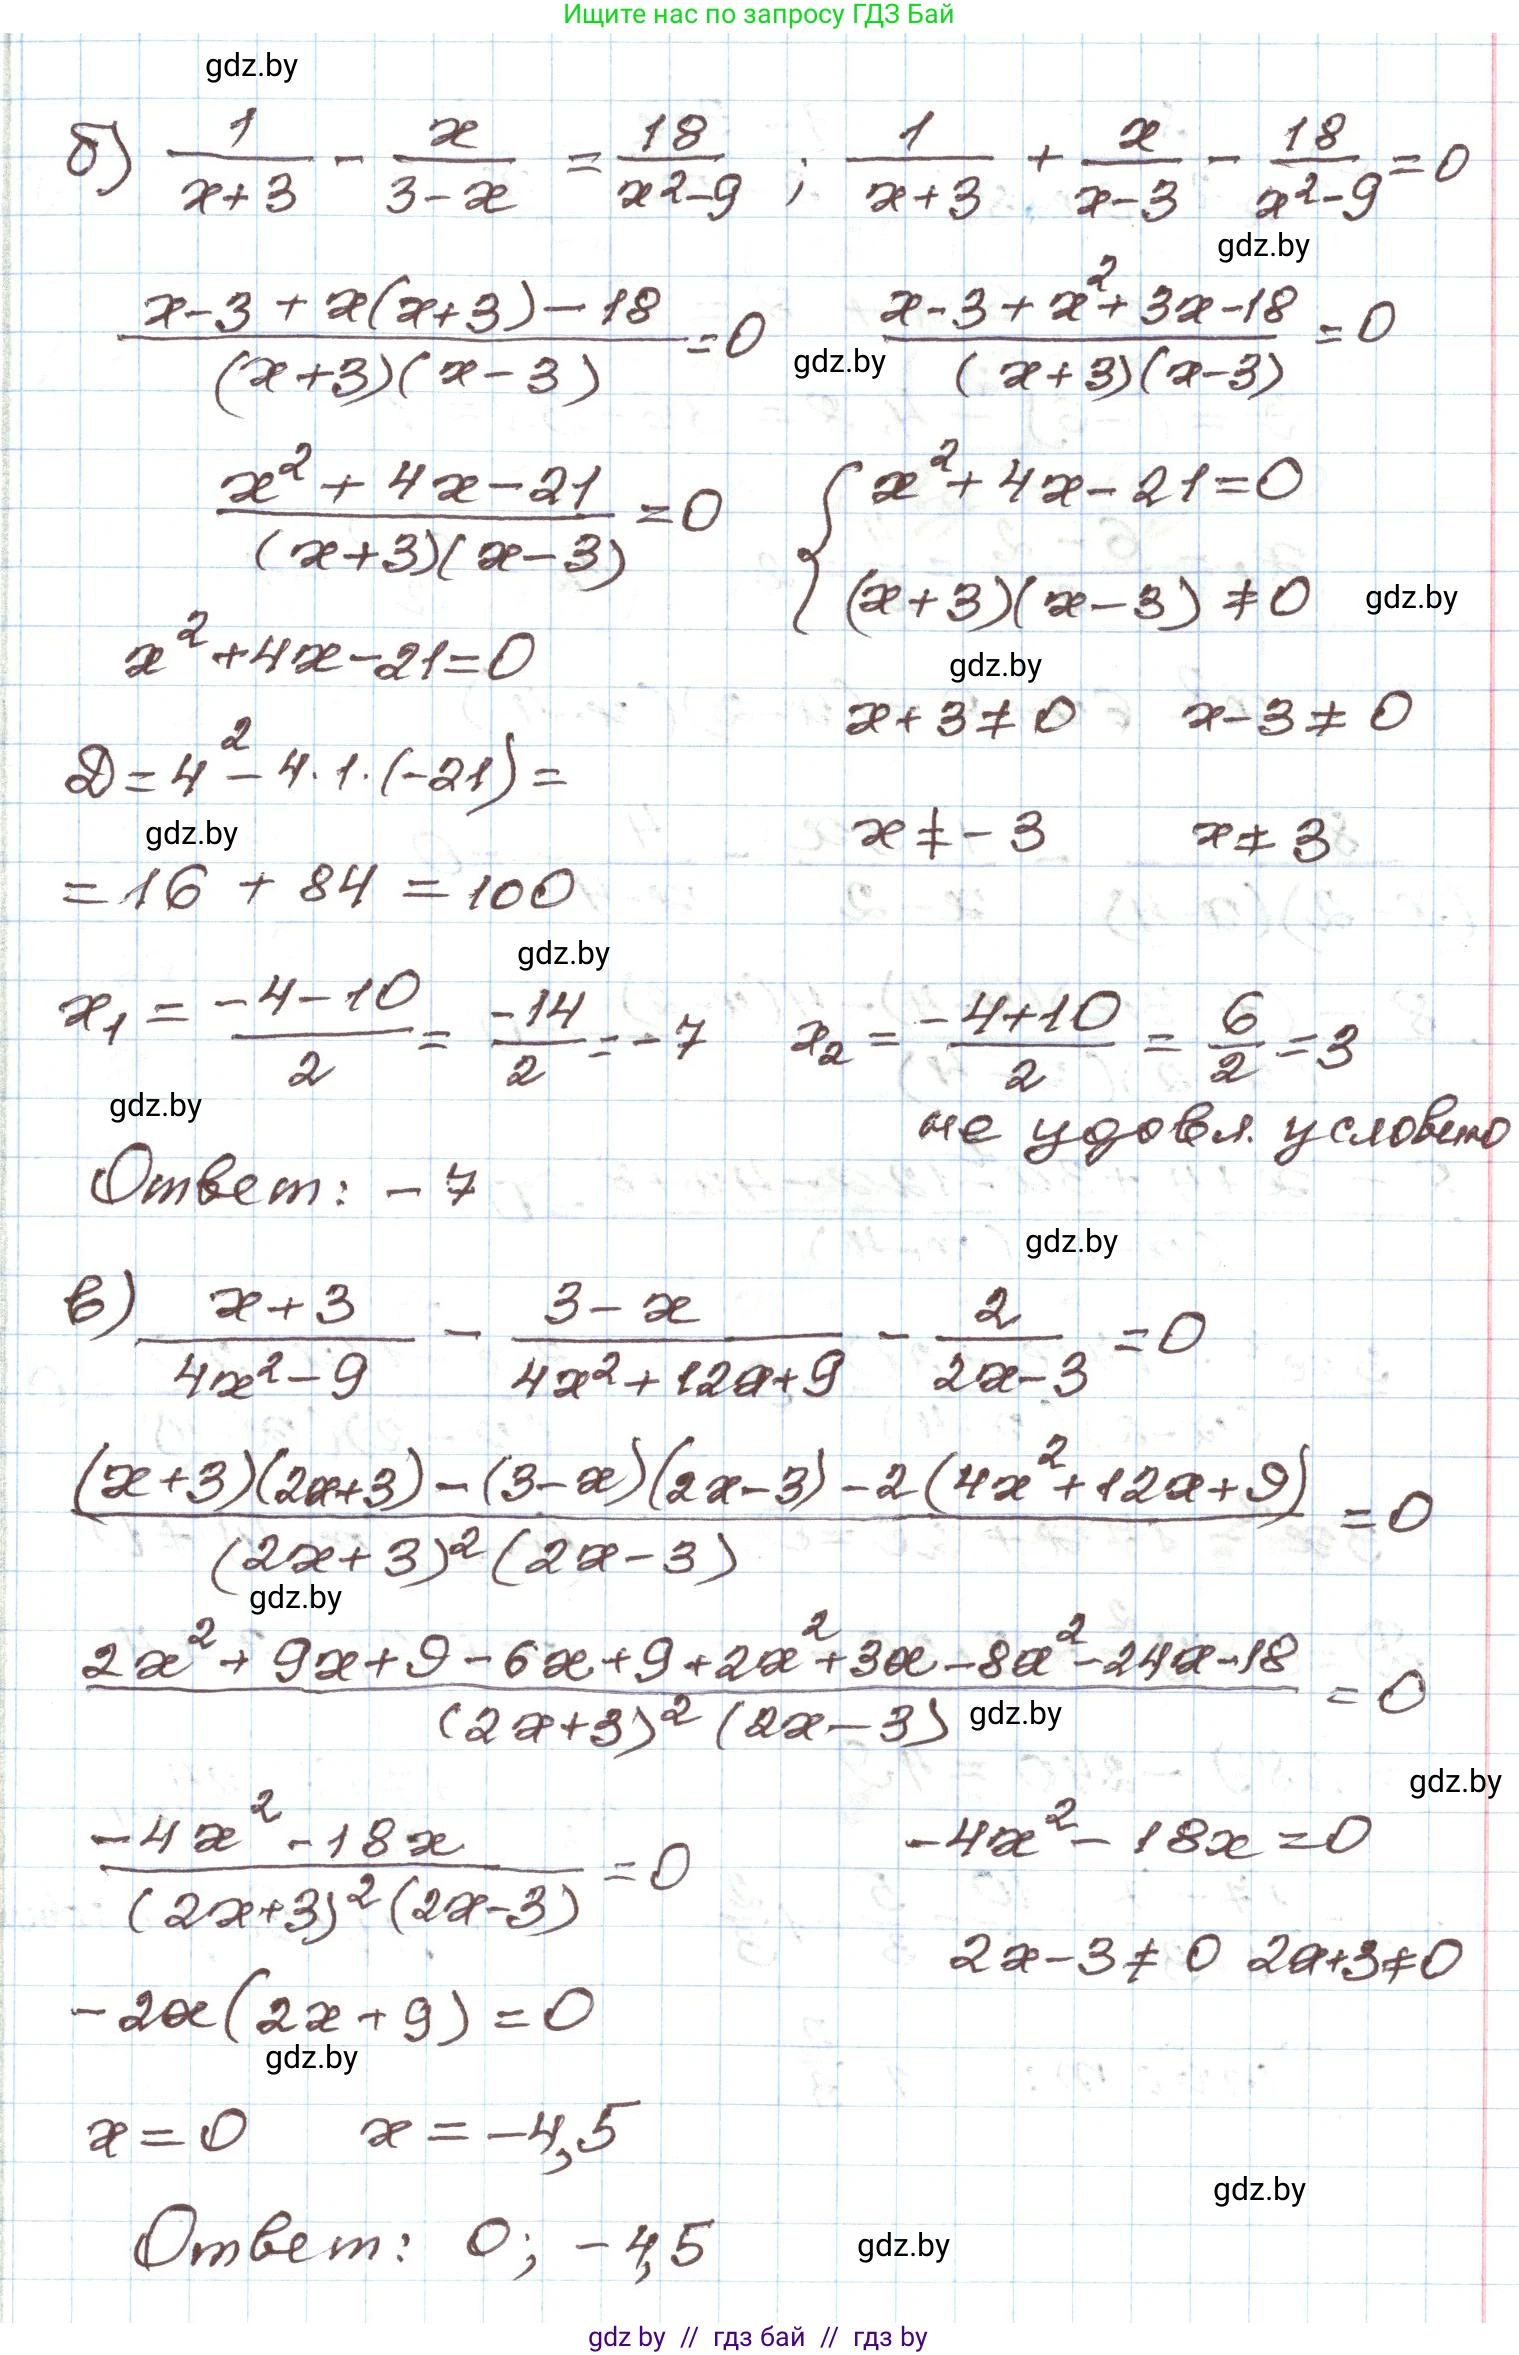 Ищите нас по запросу ГДЗ Бай
gdz.by
б) 1/(x+3) - x/(3-x) = 18/(x²-9) ; 1/(x+3) + x/(x-3) - 18/(x²-9) = 0
gdz.by
(x-3+x(x+3)-18)/((x+3)(x-3)) = 0 (x-3+x²+3x-18)/((x+3)(x-3)) = 0
gdz.by
(x²+4x-21)/((x+3)(x-3)) = 0 { x²+4x-21=0
(x+3)(x-3) ≠ 0 gdz.by
x²+4x-21=0
gdz.by
x+3≠0 x-3≠0
D = 4² - 4·1·(-21) =
gdz.by
x ≠ -3 x ≠ 3
= 16 + 84 = 100
gdz.by
x₁ = (-4-10)/2 = -14/2 = -7 x₂ = (-4+10)/2 = 6/2 = 3
gdz.by
не удовл. условию
Ответ: -7
gdz.by
в) (x+3)/(4x²-9) - (3-x)/(4x²+12x+9) - 2/(2x-3) = 0
((x+3)(2x+3)-(3-x)(2x-3)-2(4x²+12x+9))/((2x+3)²(2x-3)) = 0
gdz.by
(2x²+9x+9-6x+9+2x²+3x-8x²-24x-18)/((2x+3)²(2x-3)) = 0
gdz.by
gdz.by
(-4x²-18x)/((2x+3)²(2x-3)) = 0 -4x²-18x=0
2x-3≠0 2x+3≠0
-2x(2x+9)=0
gdz.by
x=0 x=-4,5
gdz.by
Ответ: 0; -4,5
gdz.by
gdz by // гдз бай // гдз by